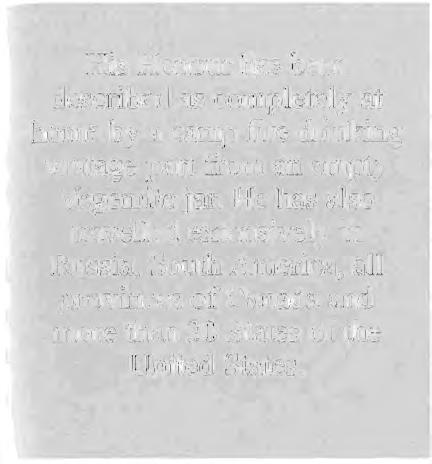 His Honour has been
described as completely at
home by a camp fire drinking
vintage port from an empty
Vegemite jar. He has also
travelled extensively in
Russia, South America, all
provinces of Canada and
more than 30 states of the
United States.